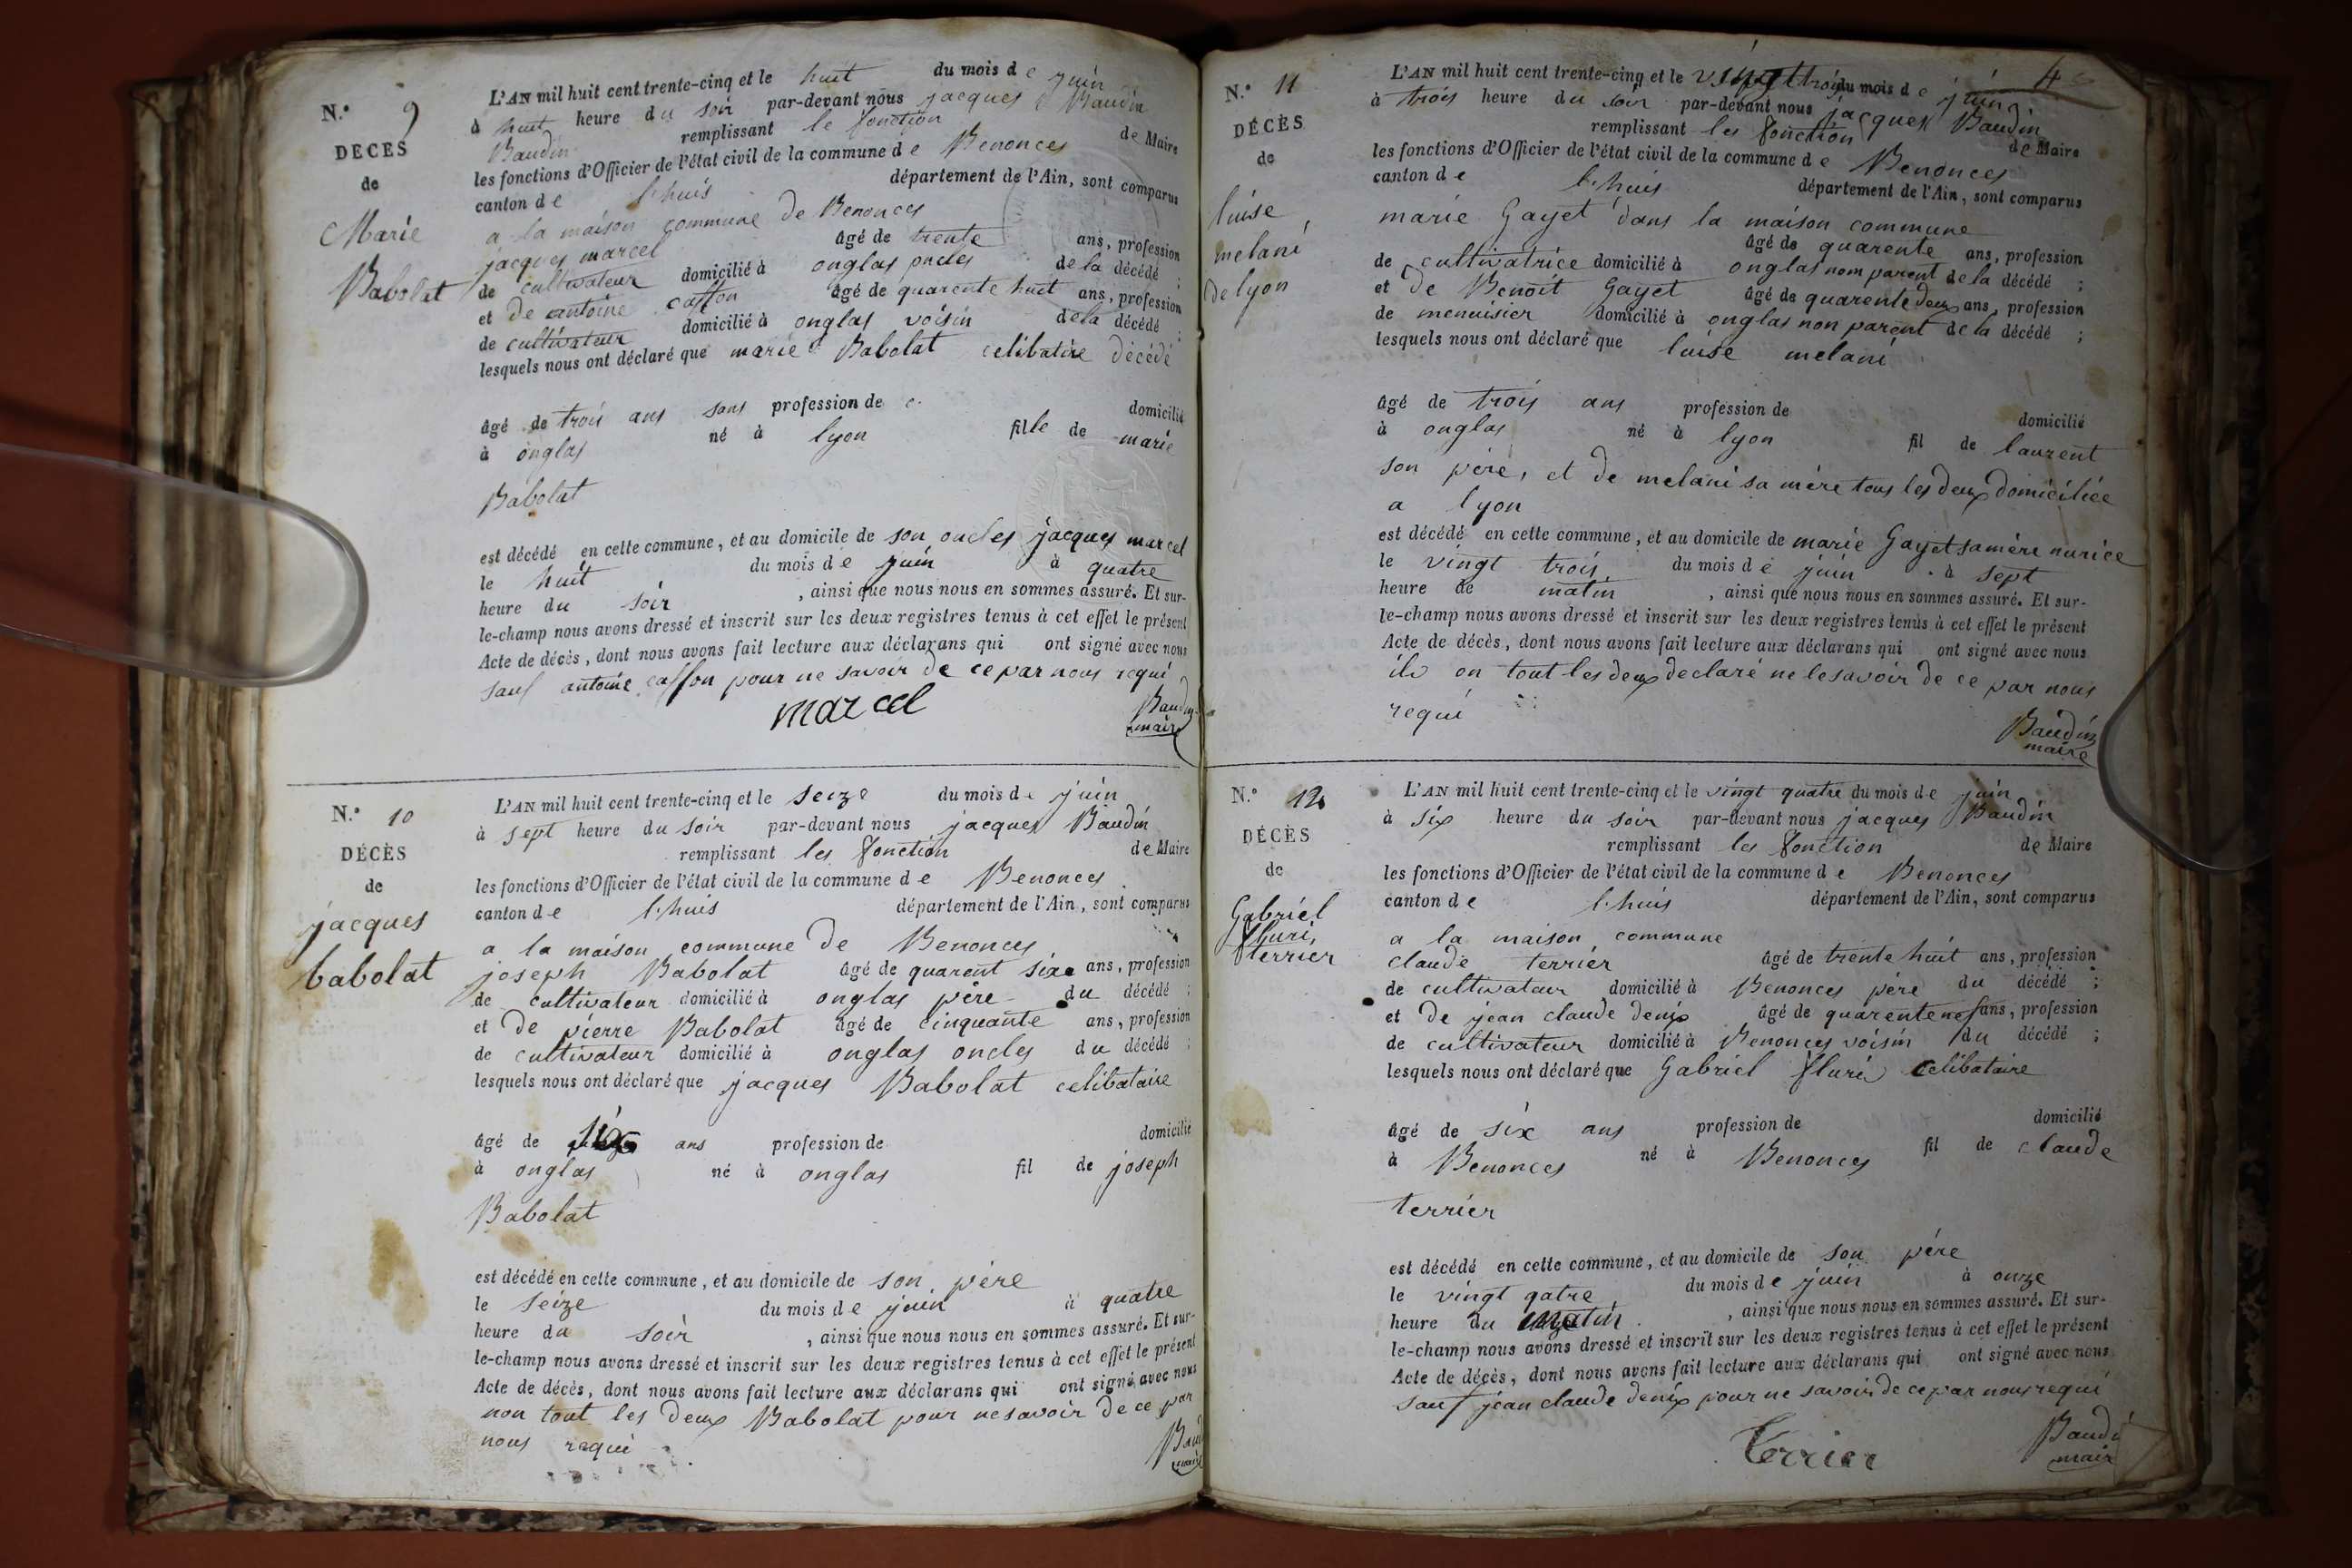 N.° 9
DÉCÈS
de
Marie
Babolat
L'AN mil huit cent trente-cinq et le huit du mois de juin
à huit heure du soir par-devant nous jacques Baudin
Baudin remplissant le fonction de Maire
les fonctions d'Officier de l'état civil de la commune de Benonces
canton de l'huis département de l'Ain, sont comparus
a la maison commune de Benonces
jacques marcel âgé de trente ans, profession
de cultivateur domicilié à onglas oncles de la décédé ;
et de antoine caffon âgé de quarente huit ans, profession
de cultivateur domicilié à onglas voisin de la décédé ;
lesquels nous ont déclaré que marie Babolat celibatire décédé
âgé de trois ans sans profession de domicilié
à onglas né à lyon fille de marie
Babolat
est décédé en cette commune, et au domicile de son oncles jacques marcel
le huit du mois de juin à quatre
heure du soir , ainsi que nous nous en sommes assuré. Et sur-
le-champ nous avons dressé et inscrit sur les deux registres tenus à cet effet le présent
Acte de décès, dont nous avons fait lecture aux déclarans qui ont signé avec nous
sauf antoine caffon pour ne savoir de ce par nous requi
marcel Baudin
maire
N.° 10
DÉCÈS
de
jacques
babolat
L'AN mil huit cent trente-cinq et le seize du mois de juin
à sept heure du soir par-devant nous jacques Baudin
remplissant les fonction de Maire
les fonctions d'Officier de l'état civil de la commune de Benonces
canton de l'huis département de l'Ain, sont comparus
a la maison commune de Benonces
joseph Babolat âgé de quarent six ans, profession
de cultivateur domicilié à onglas père du décédé ;
et de pierre Babolat âgé de cinquante ans, profession
de cultivateur domicilié à onglas oncles du décédé ;
lesquels nous ont déclaré que jacques Babolat celibataire
âgé de six ans profession de domicilié
à onglas né à onglas fil de joseph
Babolat
est décédé en cette commune, et au domicile de son père
le seize du mois de juin à quatre
heure du soir , ainsi que nous nous en sommes assuré. Et sur-
le-champ nous avons dressé et inscrit sur les deux registres tenus à cet effet le présent
Acte de décès, dont nous avons fait lecture aux déclarans qui ont signé avec nous
non tout les deux Babolat pour ne savoir de ce par
nous requi
N.° 11
DÉCÈS
de
luise
melani
de lyon
L'AN mil huit cent trente-cinq et le vingt trois du mois de juin
à trois heure du soir par-devant nous jacques Baudin
remplissant les fonction de Maire
les fonctions d'Officier de l'état civil de la commune de Benonces
canton de l'huis département de l'Ain, sont comparus
marie Gayet dans la maison commune
âgé de quarente ans, profession
de cultivatrice domicilié à onglas nom parent de la décédé ;
et de Benoit Gayet âgé de quarente deux ans, profession
de menuisier domicilié à onglas non parent de la décédé ;
lesquels nous ont déclaré que luise melani
âgé de trois ans profession de domicilié
à onglas né à lyon fil de laurent
son père, et de melani sa mère tous les deux domiciliée
a lyon
est décédé en cette commune, et au domicile de marie Gayet sa mère nurice
le vingt trois du mois de juin à sept
heure de matin , ainsi que nous nous en sommes assuré. Et sur-
le-champ nous avons dressé et inscrit sur les deux registres tenus à cet effet le présent
Acte de décès, dont nous avons fait lecture aux déclarans qui ont signé avec nous
ils on tout les deux declaré ne le savoir de ce par nous
requi
Baudin
maire
N.° 12
DÉCÈS
de
Gabriel
fluri
terrier
L'AN mil huit cent trente-cinq et le vingt quatre du mois de juin
à six heure du soir par-devant nous jacques Baudin
remplissant les fonction de Maire
les fonctions d'Officier de l'état civil de la commune de Benonces
canton de l'huis département de l'Ain, sont comparus
a la maison commune
claude terrier âgé de trente huit ans, profession
de cultivateur domicilié à Benonces père du décédé ;
et de jean claude denix âgé de quarente nef ans, profession
de cultivateur domicilié à Benonces voisin du décédé ;
lesquels nous ont déclaré que Gabriel fluri celibataire
âgé de six ans profession de domicilié
à Benonces né à Benonces fil de claude
terrier
est décédé en cette commune, et au domicile de son père
le vingt qatre du mois de juin à onze
heure du matin , ainsi que nous nous en sommes assuré. Et sur-
le-champ nous avons dressé et inscrit sur les deux registres tenus à cet effet le présent
Acte de décès, dont nous avons fait lecture aux déclarans qui ont signé avec nous
sauf jean claude denix pour ne savoir de ce par nous requi
Terrier